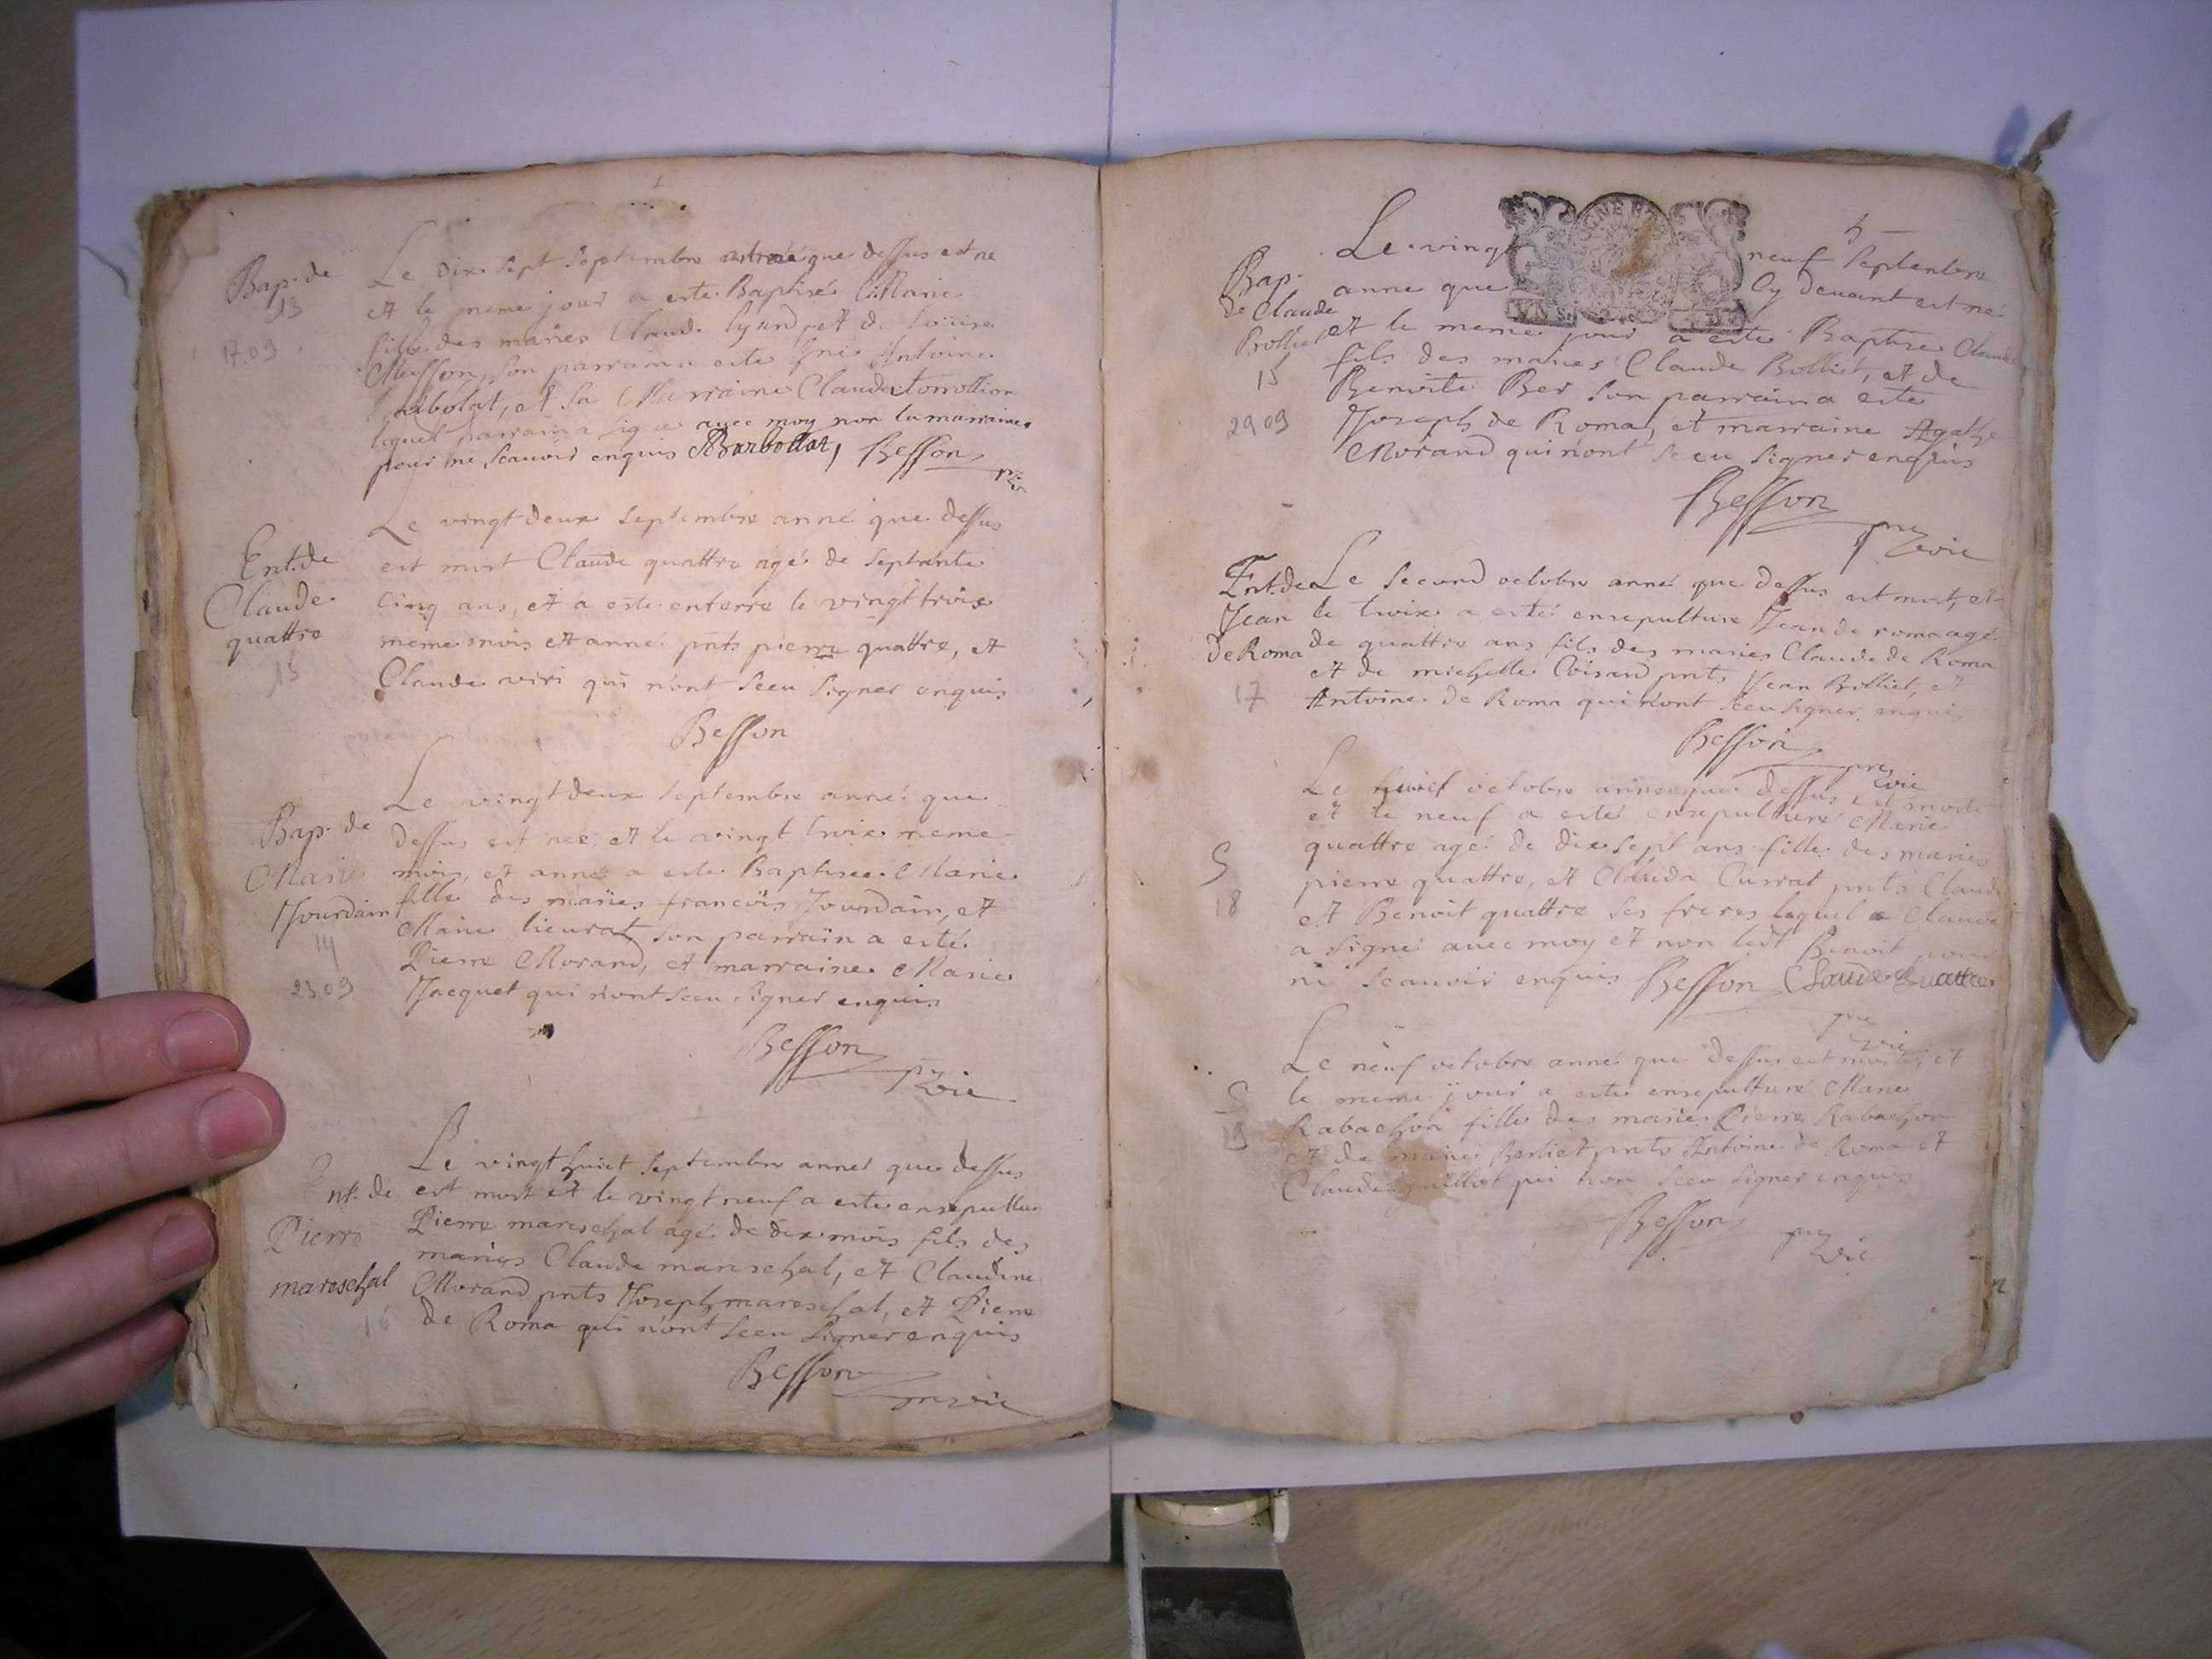 Bap. de
13
17.09
Le dix sept septembre année que dessus est ne
et le meme jour a este Baptisée Marie
fille des maries Claude et de Louise
Musson, son parrain a este Antoine
et sa Marraine Clauda
lequel parrain a signé avec moy non la marraine
pour ne scauoir enquis Barbollat, Besson
Ent. de
Claude
quattre
15
Le vingt deux septembre anné que dessus
est mort Claude quattre agé de septante
cinq ans, et a este enterre le vingt troix
meme mois et anné pnts pierre quattre, et
Claude viri qui n'ont sceu signer enquis
Besson
Bap. de
Marie
Jourdain
14
23 09
Le vingt deux septembre anné que
dessus est nee, et le vingt troix meme
mois, et anné a este Baptisee Marie
fille des maries francois Jourdain, et
Marie lieurat son parrain a esté
Pierre Morand, et marraine Marie
Jacquet qui n'ont sceu signer enquis
Besson
pre vic
Ent. de
Pierre
mareschal
16
Le vingt huict septembre anné que dessus
est mort et le vingt neuf a este ensepulture
Pierre mareschal agé de dix mois fils des
maries Claude mareschal, et Claudine
Morand pnts Joseph mareschal, et Pierre
de Roma qui n'ont sceu signer enquis
Besson
pre vic
5
Bap.
de Claude
Bolliet
15
29 09
Le vingt neuf septembre
anne que Cy deuant est né
et le meme jour a este Baptise Claude
fils des maries Claude Bolliet, et de
Benoite Ber son parrain a este
Joseph de Roma, et marraine Agathe
Morand qui n'ont sceu signer enquis
Besson
pre vic
Ent. de
Jean
de Roma
17
Le second octobre anné que dessus est mort, et
le troix a esté ensepulture Jean de roma agé
de quattre ans fils des maries Claude de Roma
et de michelle Coisard pnts Jean Bolliet, et
Antoine de Roma qui n'ont sceu signer enquis
Besson
pre vic
S
18
Le huict octobre anné que dessus est morte
et le neuf a esté ensepulturé Marie
quattre agé de dix sept ans fille des maries
pierre quattre, et Clauda Currat pnts Claude
et Benoit quattre ses freres lequel Claude
a signé auec moy et non ledt Benoit pour
ne scauoir enquis Besson Claude Quattre
pre vic
S
19
Le neuf octobre anné que dessus est morte, et
le meme jour a este ensepulturé Marie
Rabachon fille des maries Pierre Rabachon
et de marie Berliet pnts Antoine de Roma et
Claude guillot qui non sceu signer enquis
Besson
pre vic